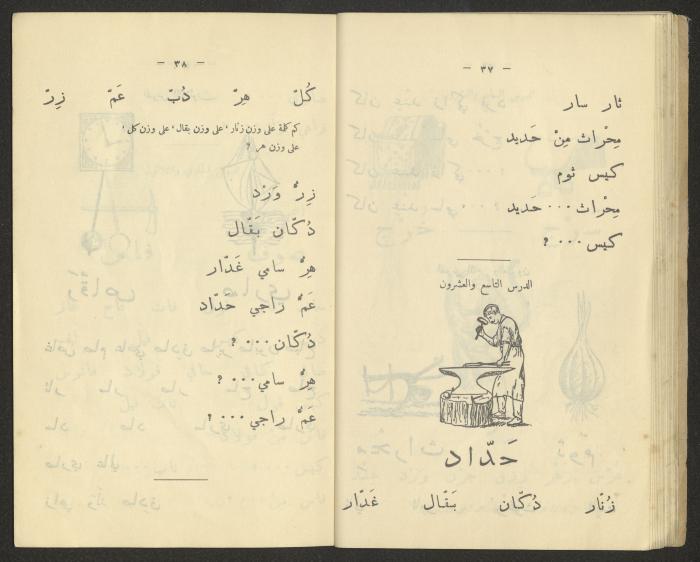 - ٣٧ -
ثار سار
مِحْراث مِنْ حَديد
كيس ثوم
مِحْراث ... حديد
كيس ... ؟
الدرس التاسع والعشرون
حَدّاد
زُنّار دُكّان بَقّال غَدّار
- ٣٨ -
كُلّ هِرّ دُبّ عَمّ زِرّ
كم كلمة على وزن زنّار ، على وزن بقال ، على وزن كل ،
على وزن هر ؟
زِرُّ وَرْد
دُكّان بَقّال
هِرُّ سامي غَدّار
عَمُّ راجي حَدّاد
دُكّان ... ؟
هِرُّ سامي ... ؟
عَمُّ راجي ... ؟